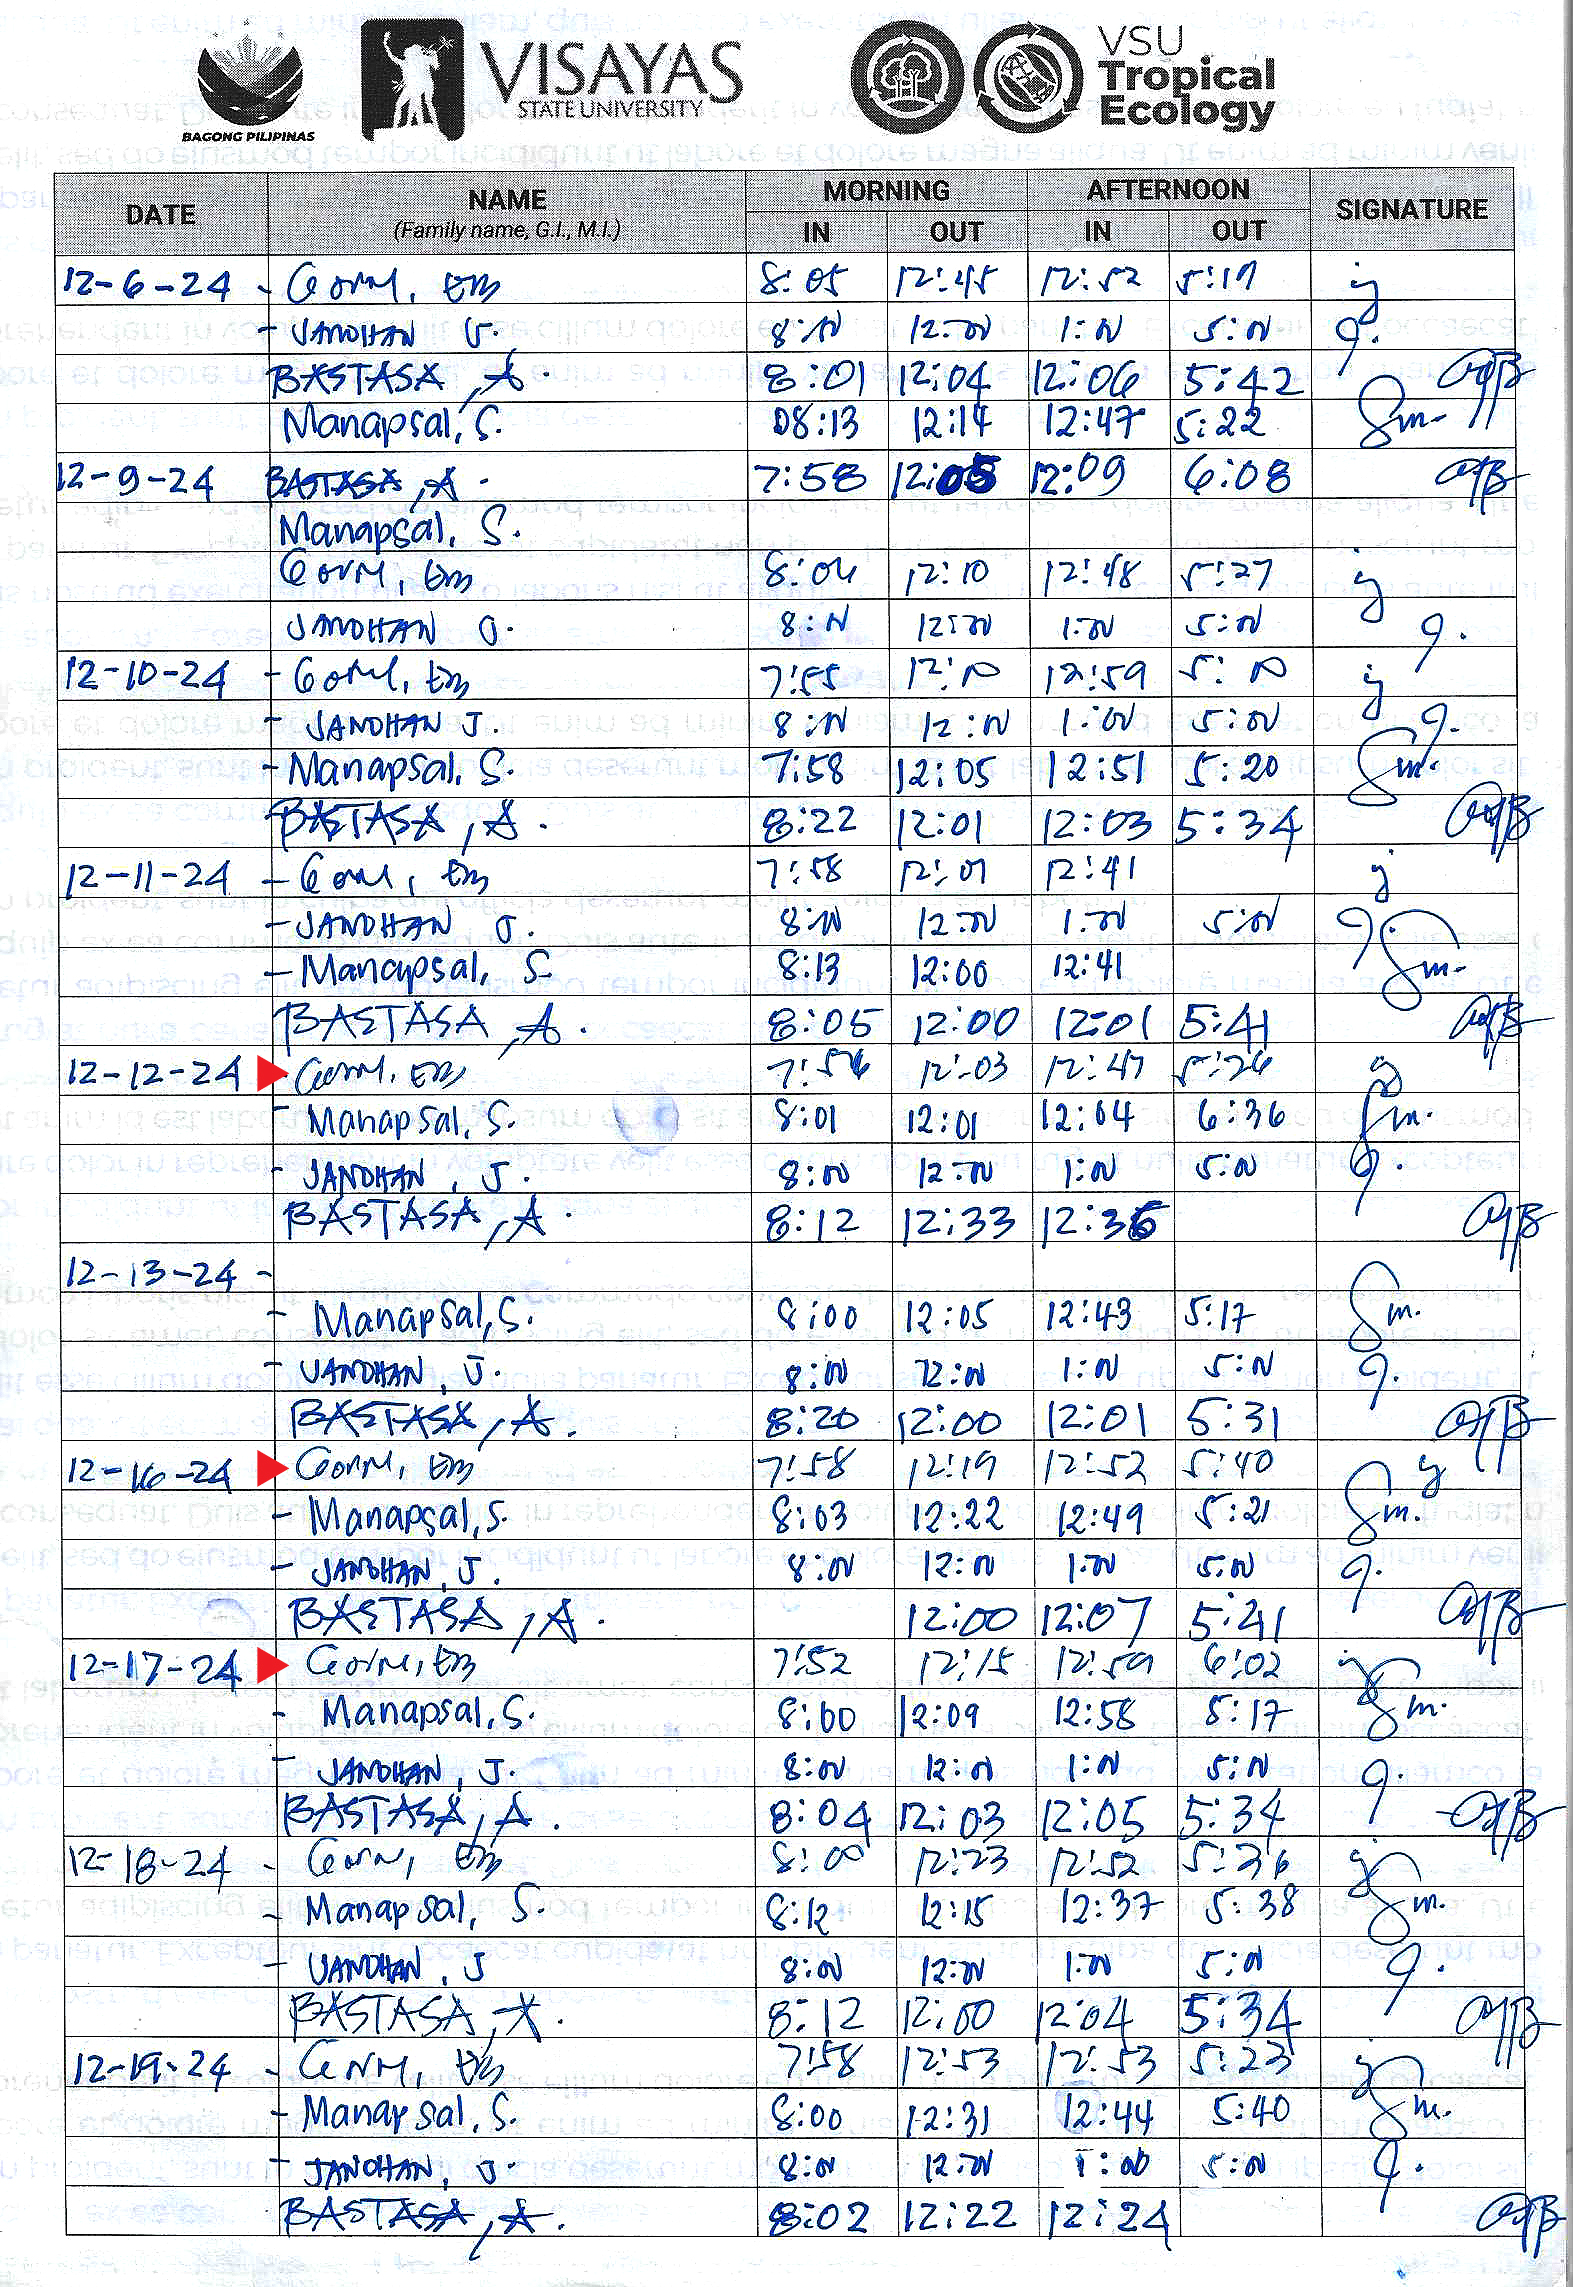 BAGONG PILIPINAS
VISAYAS
STATE UNIVERSITY
VSU
Tropical
Ecology
DATE NAME (Family name, G.I., M.I.) MORNING IN OUT AFTERNOON IN OUT SIGNATURE
12-6-24 - 8:05 12:45 12:52 5:19
- JANDHAN J. 8:00 12:00 1:00 5:00
BASTASA, A. 8:01 12:04 12:06 5:42
Manapsal, S. 08:13 12:14 12:47 5:22
12-9-24 BASTASA, A. 7:58 12:05 12:09 6:08
Manapsal, S.
8:04 12:10 12:48 5:27
JANDHAN J. 8:00 12:00 1:00 5:00
12-10-24 - 7:55 12:00 12:59 5:00
- JANDHAN J. 8:00 12:00 1:00 5:00
- Manapsal, S. 7:58 12:05 12:51 5:20
BASTASA, A. 8:22 12:01 12:03 5:34
12-11-24 - 7:58 12:01 12:41
- JANDHAN J. 8:00 12:00 1:00 5:00
- Manapsal, S. 8:13 12:00 12:41
BASTASA, A. 8:05 12:00 12:01 5:41
12-12-24 12:03 12:47 5:26
- Manapsal, S. 8:01 12:01 12:04 6:36
- JANDHAN, J. 8:00 12:00 1:00 5:00
BASTASA, A. 8:12 12:33 12:35
12-13-24 -
- Manapsal, S. 8:00 12:05 12:43 5:17
- JANDHAN, J. 8:00 12:00 1:00 5:00
BASTASA, A. 8:20 12:00 12:01 5:31
12-16-24 7:58 12:19 12:52 5:40
- Manapsal, S. 8:03 12:22 12:49 5:21
- JANDHAN, J. 8:00 12:00 1:00 5:00
BASTASA, A. 12:00 12:07 5:41
12-17-24 7:52 12:15 12:59 6:02
- Manapsal, S. 8:00 12:09 12:58 5:17
- JANDHAN, J. 8:00 12:00 1:00 5:00
BASTASA, A. 8:04 12:03 12:05 5:34
12-18-24 - 8:00 12:23 12:52 5:36
- Manapsal, S. 8:12 12:15 12:37 5:38
- JANDHAN, J 8:00 12:00 1:00 5:00
BASTASA, A. 8:12 12:00 12:04 5:34
12-19-24 - 7:58 12:53 12:53 5:23
- Manapsal, S. 8:00 12:31 12:44 5:40
- JANDHAN, J. 8:00 12:00 1:00 5:00
BASTASA, A. 8:02 12:22 12:24